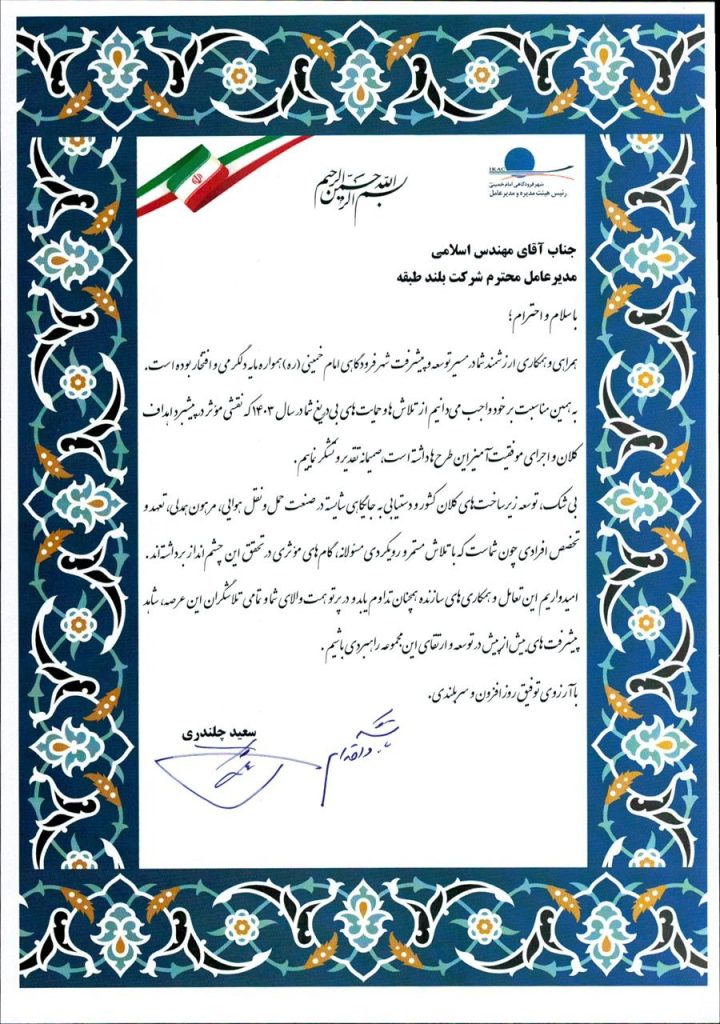 بسم الله الرحمن الرحیم
IKAC
شهر فرودگاهی امام خمینی
رئیس هیئت مدیره و مدیرعامل
جناب آقای مهندس اسلامی
مدیرعامل محترم شرکت بلند طبقه
با سلام و احترام؛
همراهی و همکاری ارزشمند شما در مسیر توسعه و پیشرفت شهر فرودگاهی امام خمینی (ره) همواره مایه دلگرمی و افتخار بوده است.
به همین مناسبت بر خود واجب می دانیم از تلاش ها و حمایت های بی دریغ شما در سال ۱۴۰۳ که نقشی مؤثر در پیشبرد اهداف
کلان و اجرای موفقیت آمیز این طرح ها داشته است، صمیمانه تقدیر و تشکر نماییم.
بی شک، توسعه زیرساخت های کلان کشور و دستیابی به جایگاهی شایسته در صنعت حمل و نقل هوایی، مرهون همدلی، تعهد و
تخصص افرادی چون شماست که با تلاش مستمر و رویکردی مسئولانه، گام های مؤثری در تحقق این چشم انداز برداشته اند.
امیدواریم این تعامل و همکاری های سازنده همچنان تداوم یابد و در پرتو همت والای شما و تمامی تلاشگران این عرصه، شاهد
پیشرفت های بیش از پیش در توسعه و ارتقای این مجموعه راهبردی باشیم.
با آرزوی توفیق روزافزون و سربلندی.
سعید چلندری